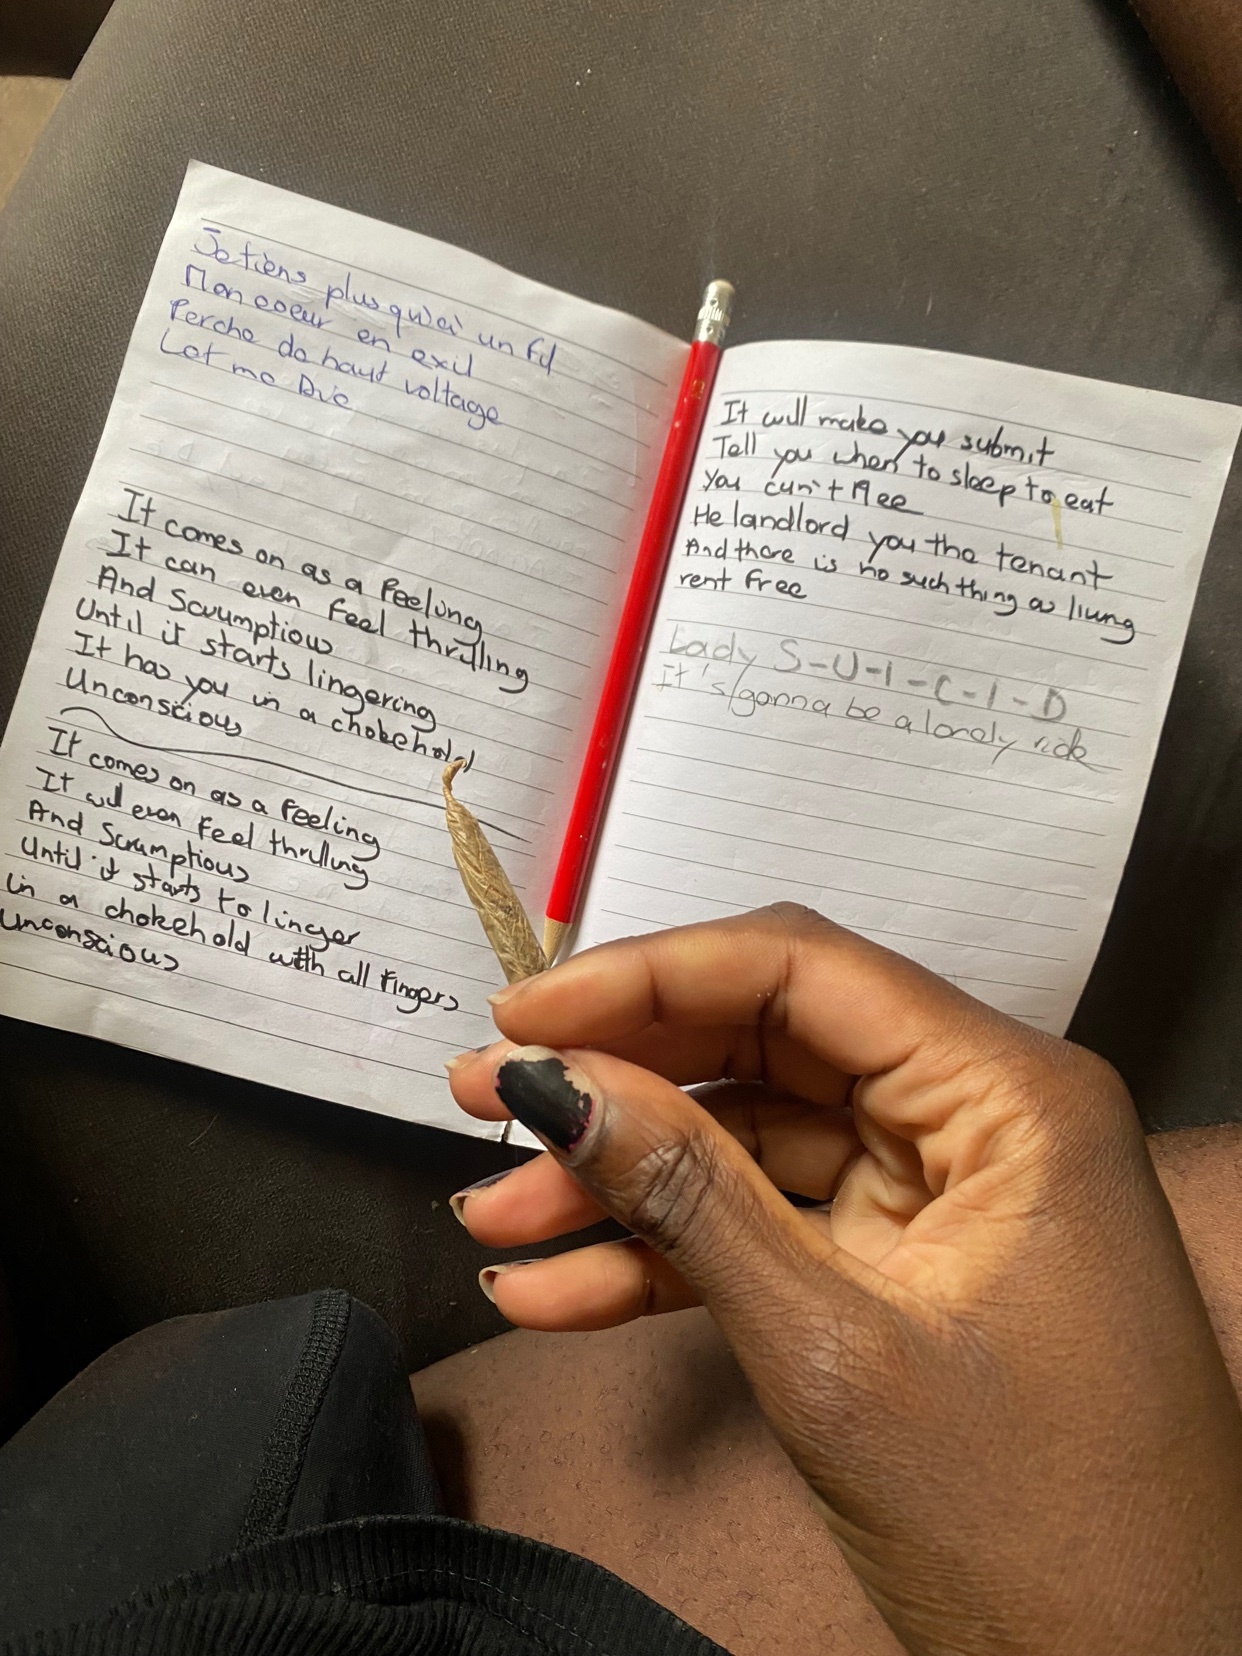 Je tiens plus qu'à un fil
Mon coeur en exil
Perche de haut voltage
Let me Die
It comes on as a feeling
It can even feel thrilling
And Scrumptious
Until it starts lingering
It has you in a chokehold
Unconscious
It comes on as a feeling
It will even feel thrilling
And Scrumptious
Until it starts to linger
in a chokehold with all fingers
Unconscious
It will make you submit
Tell you when to sleep to eat
You can't flee
He landlord you the tenant
And there is no such thing as living
rent free
Lady S-U-I-C-I-D
It's gonna be a lonely ride